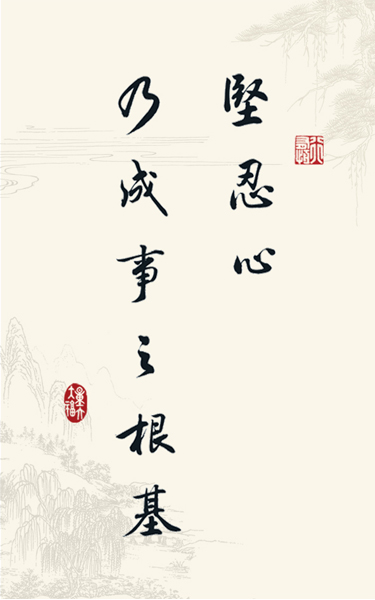 堅忍心
乃成事之根基